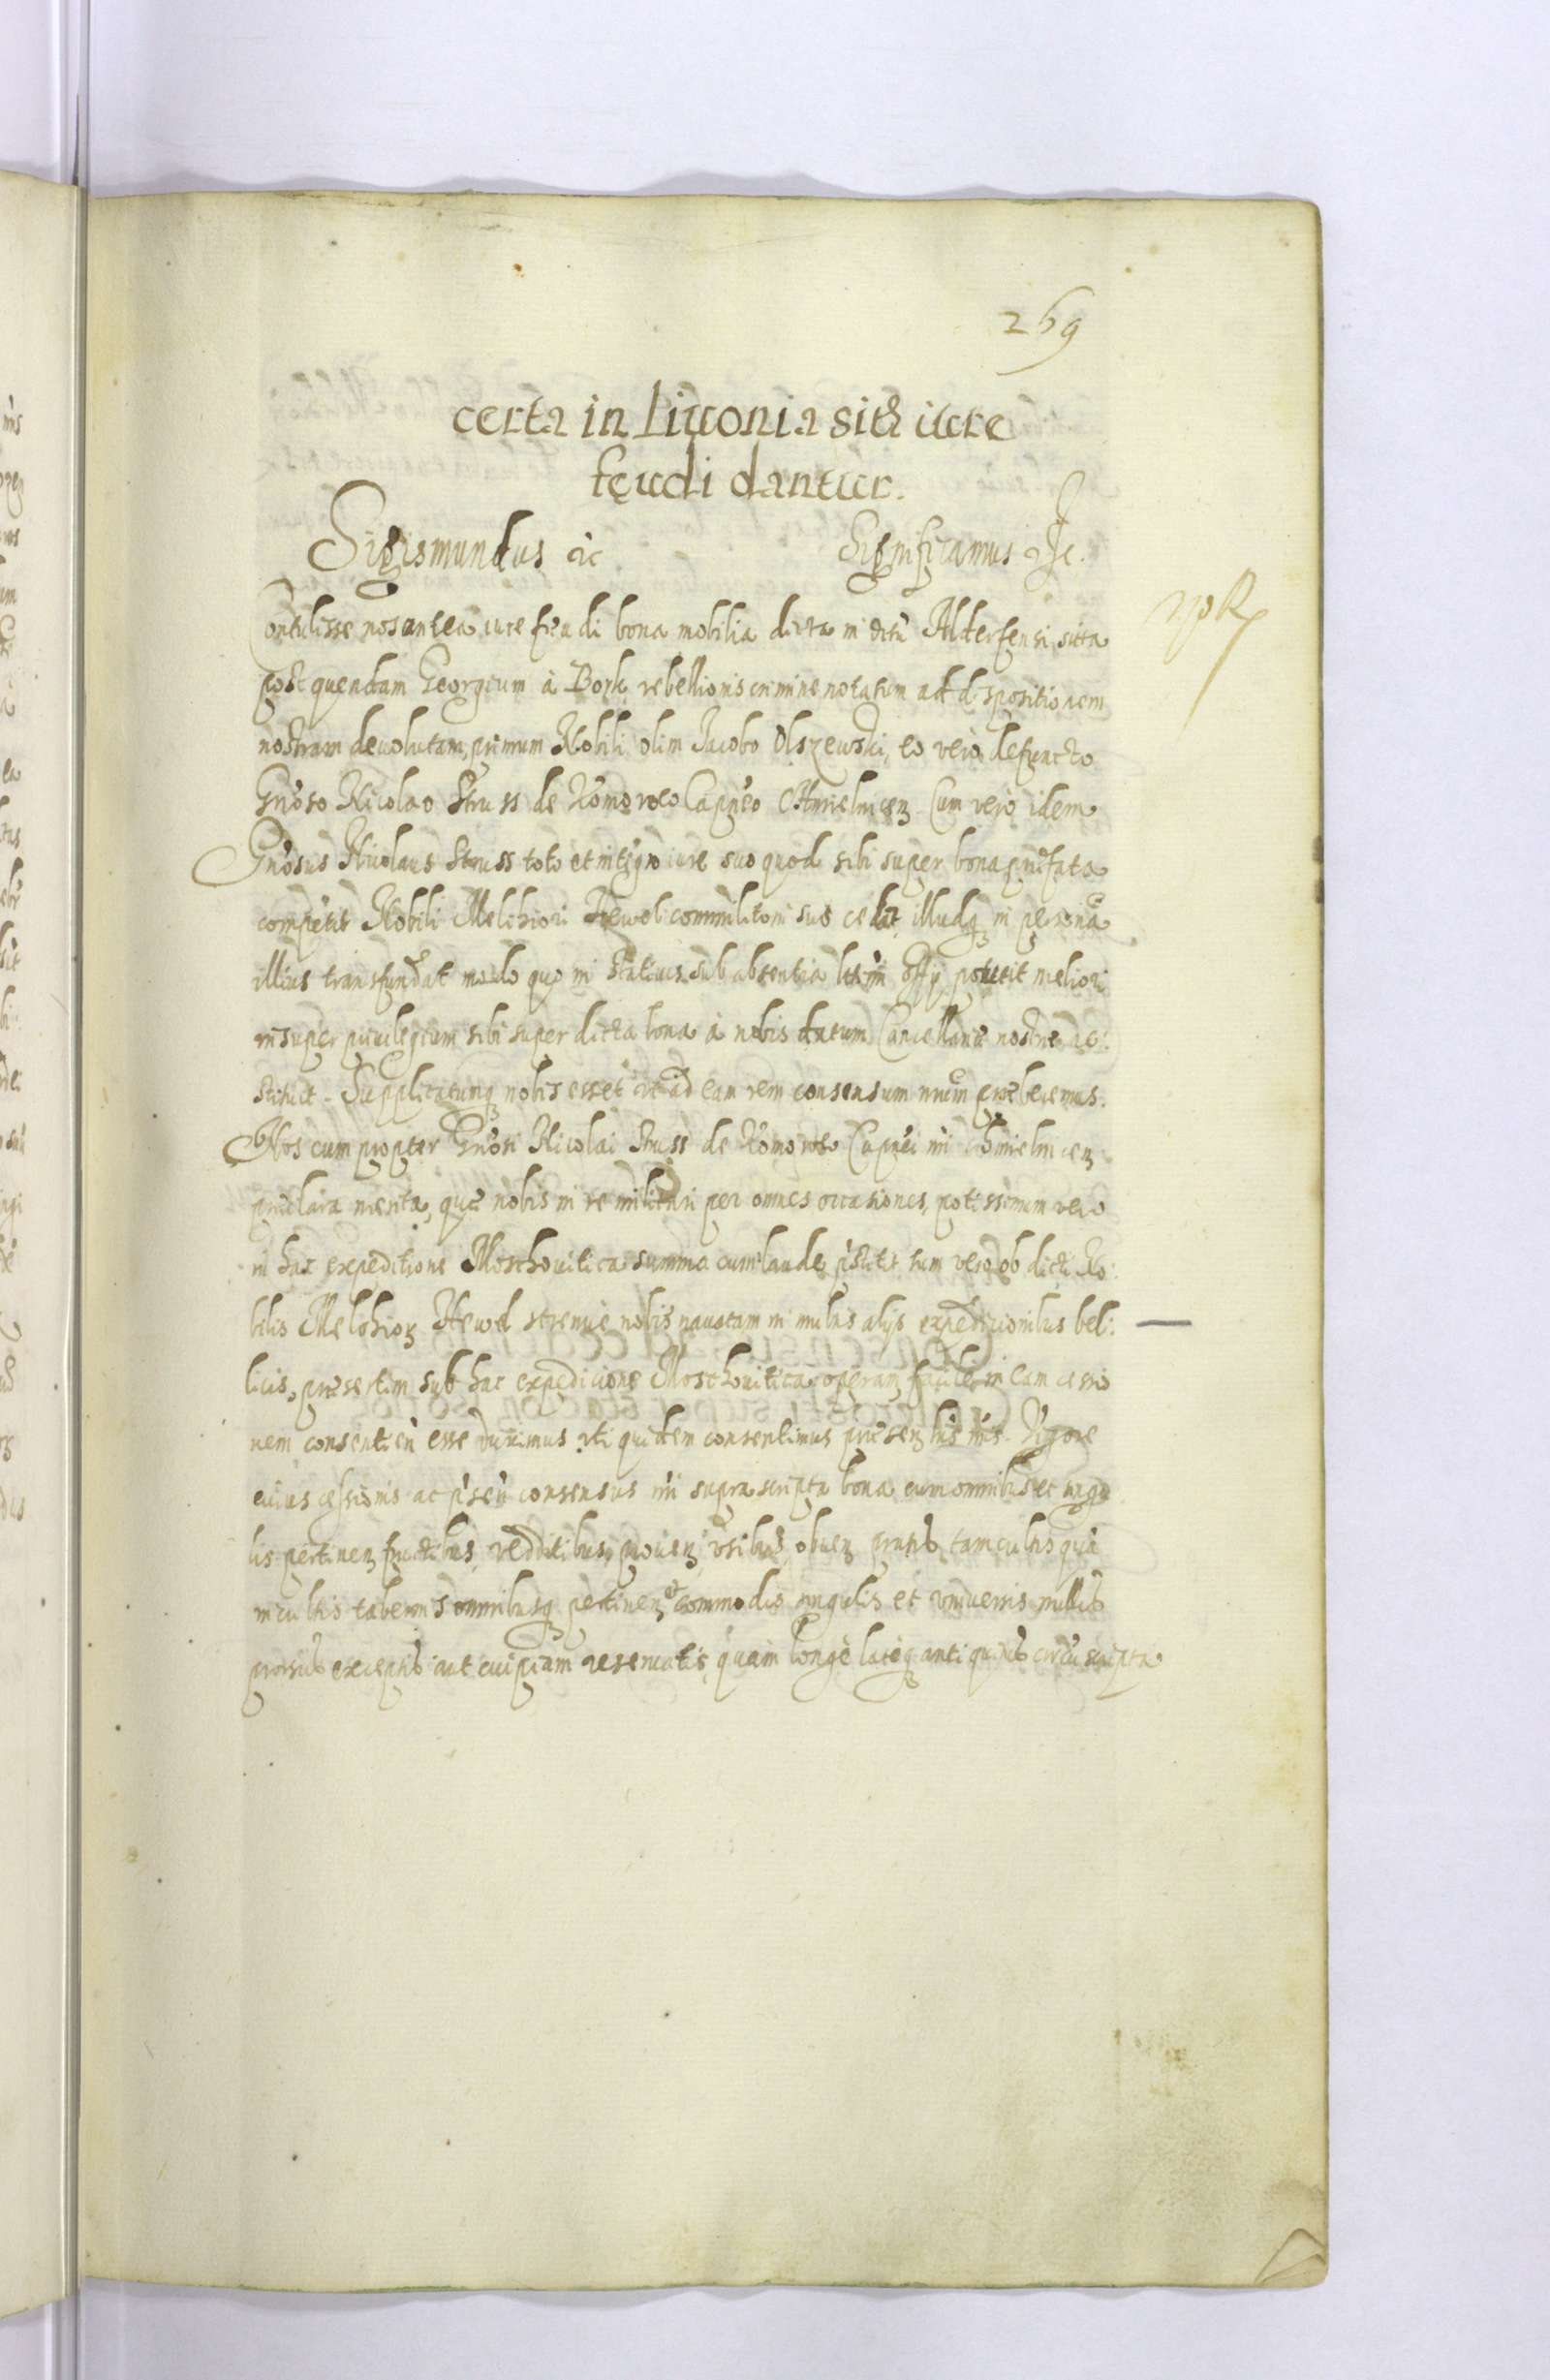 269
certa in Liuonia sita iure
feudi dantur.
Sigismundus etc Significamus etc.
Contulisse nos antea iure feudi bona mobilia dicta in drtu sitta
post quendam Georgium à Bork rebellionis crimine notatum ad dispositionem
nostram deuolutam, primum Nobili olim Jacobo Olszewski, eo vero defuncto
Gnoso Nicolao Struss de Komorow Capneo Chmielnicen Cum vero idem
Gnosus Nicolaus Struss toto et integro iure suo quod sibi super bona praefata
competit Nobili Melchiori commilitoni suo cedat, illudq in personam
illius transfundat modo quo in statiuis sub absentia offy potuit meliori
insuper priuilegium sibi super dicta bona à nobis datum Cancellariae nostrae re:
stituit. Supplicatumq nobis esset vt ad eam rem consensum nrum praeberemus.
Nos cum propter Gnosi Nicolai Struss de Komorow Capnei nri Chmielnicen
praeclara merita, quae nobis in re militari per omnes occasiones, potissimum vero
in hac expeditione Moschouitica summa cum laude pstitit tum vero ob dicti No:
bilis Melchior strenue nobis nauatam in multis alijs expeditionibus bel:
licis, praesertim sub hac expedicione Moschouitica operam, facile in eam cessio
nem consentien esse duximus vti quidem consentimus praesen lris nris. Vigore
cuius cessionis ac psen consensus nri suprascripta bona cum omnibus et singu
lis pertinen fructibus, redditibus, prouen, vsibus, obuen pratis tam cultis quam
incultis tabernis omnibusq pertinen et commodis singulis et vniuersis nullis
prorsus exceptis aut cuipiam reseruatis, quam longè latèq antiquitus circumscripta